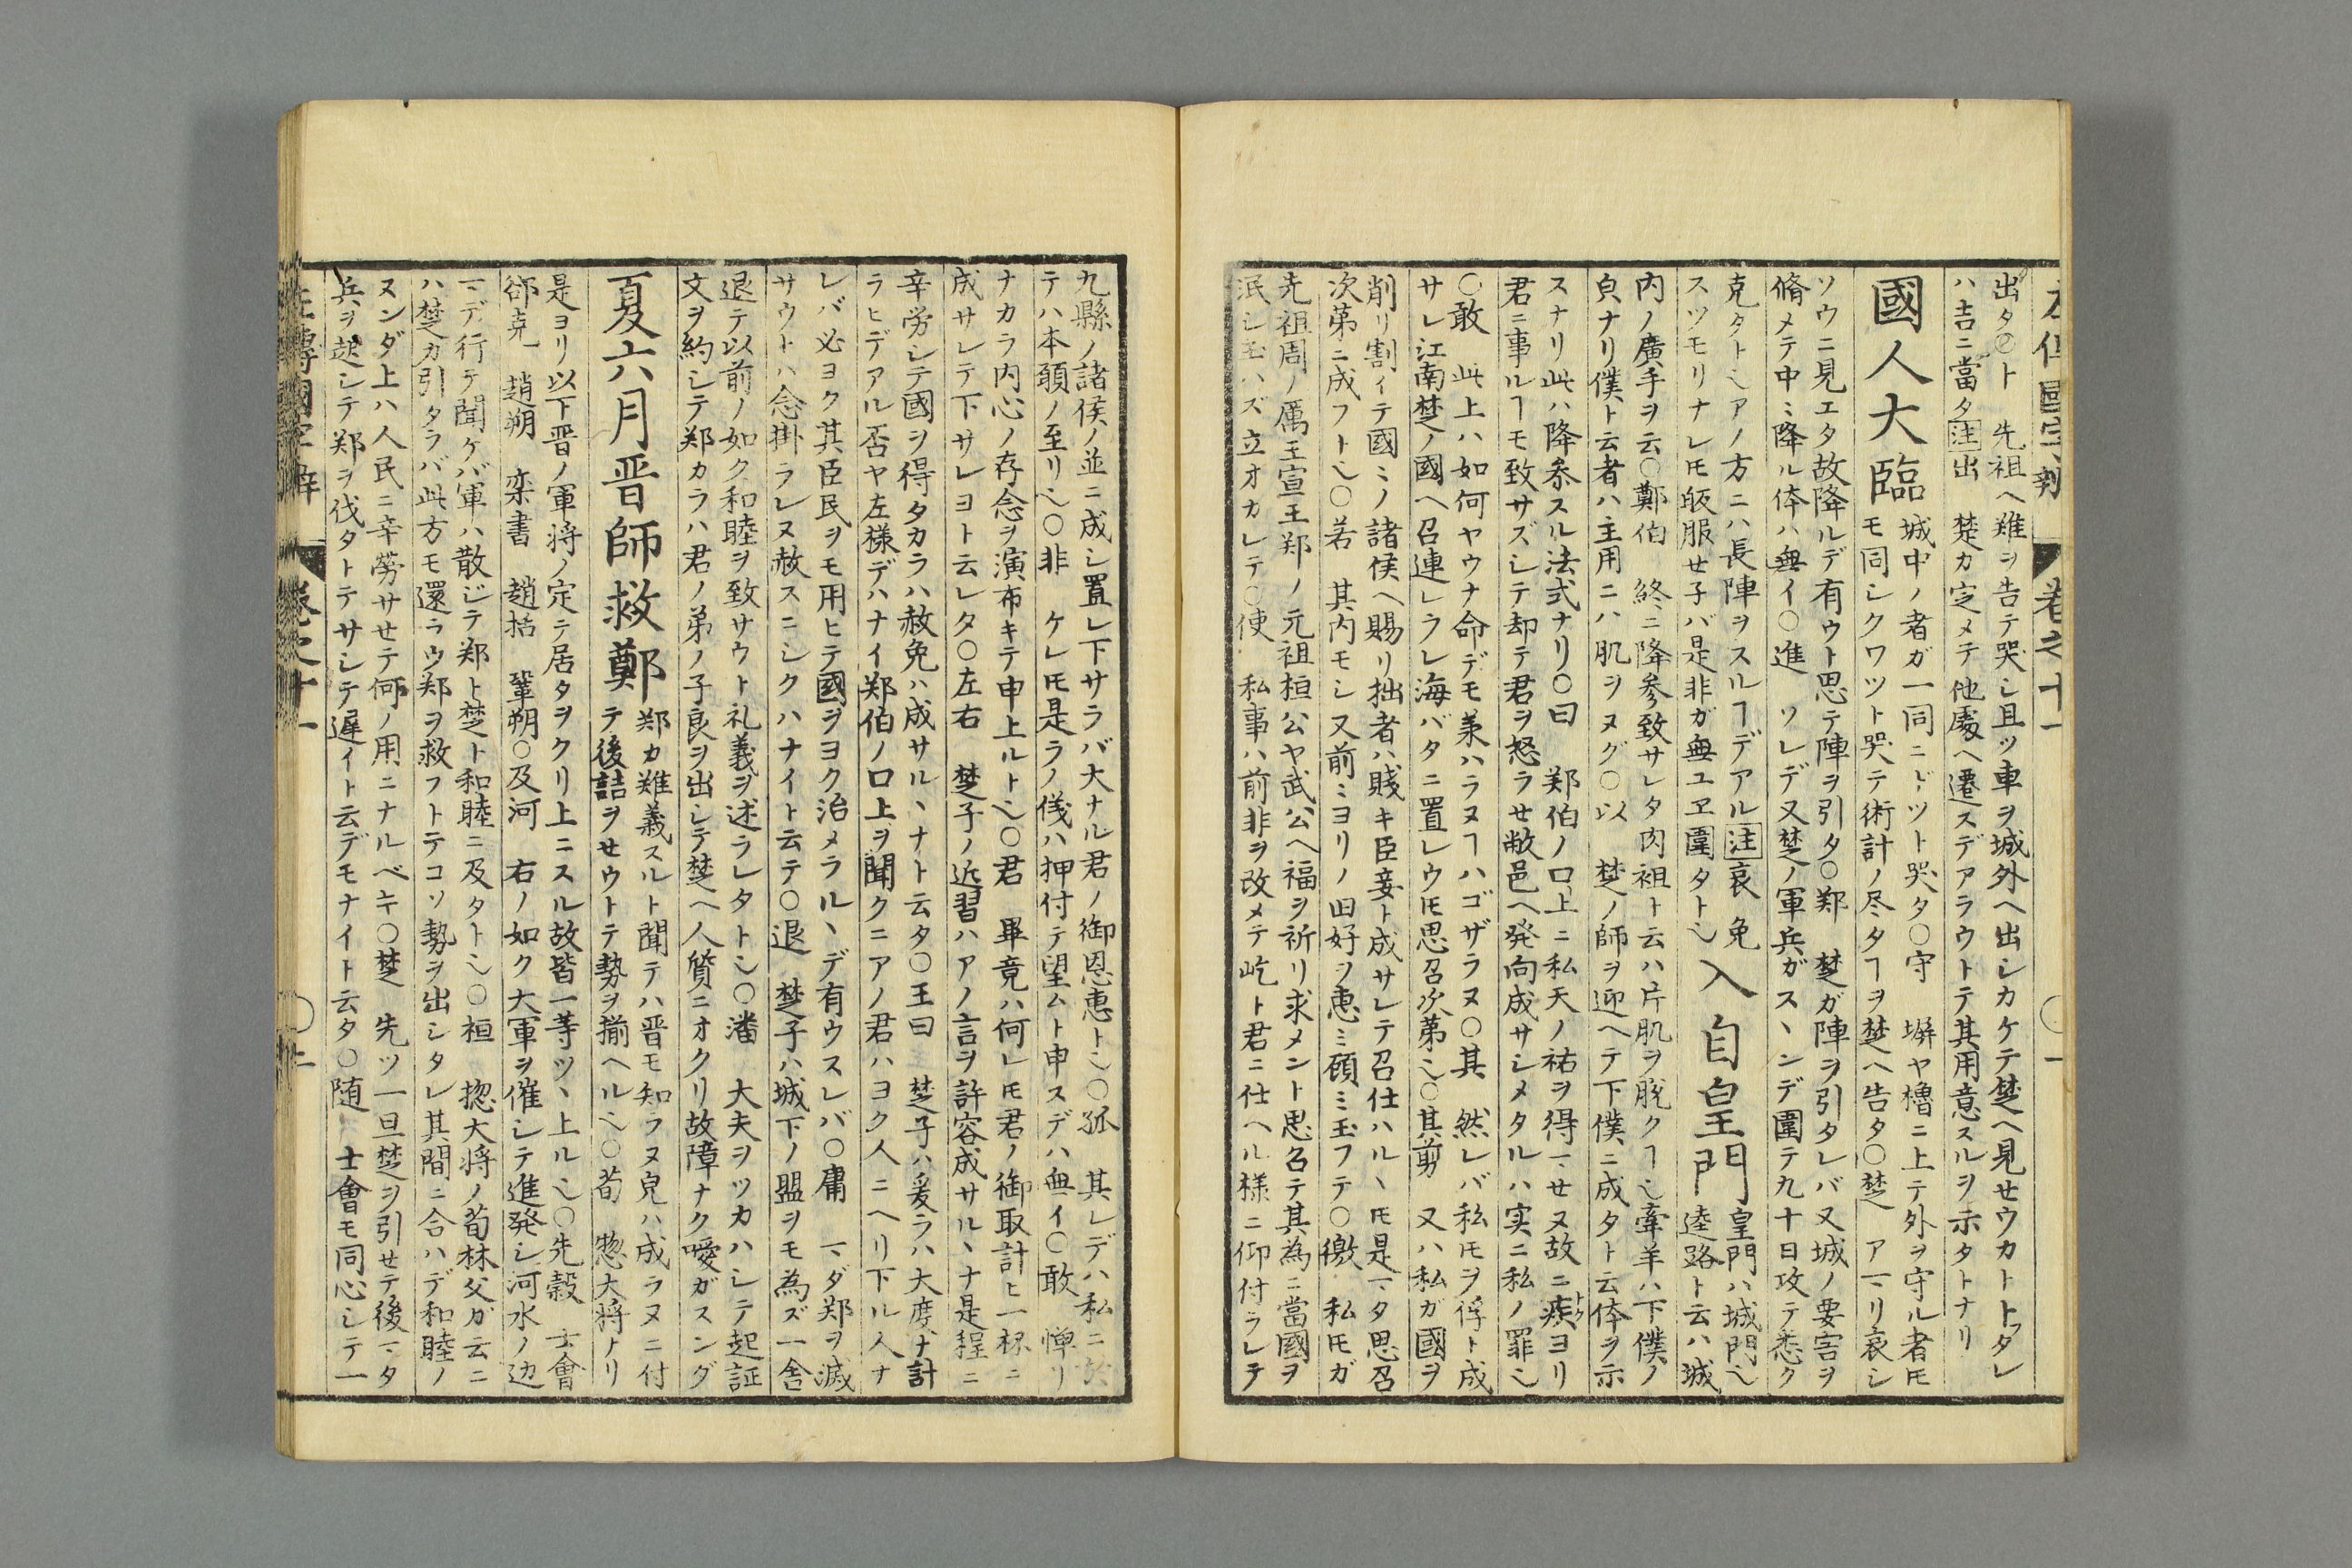 左傳國字辯 卷之十一 〇一
出タ〇ト 先祖ヘ難ヲ告テ哭シ且ツ車ヲ城外ヘ出シカケテ楚ヘ見セウカトトツタレ
ハ吉ニ當タ注出 楚カ定メテ他處ヘ遷スデアラウトテ其用意スルヲ示タトナリ
國人大臨
城中ノ者ガ一同ニドツト哭タ〇守 塀ヤ櫓ニ上テ外ヲ守ル者ㇳモ
モ同シクワツト哭テ術計ノ尽タヿヲ楚ヘ告タ〇楚 アマリ哀シ
ソウニ見エタ故降ルデ有ウト思テ陣ヲ引タ〇郑 楚ガ陣ヲ引タレバ又城ノ要害ヲ
脩メテ中ミ降ル体ハ無イ〇進 ソレデ又楚ノ軍兵ガスヽンデ圍テ九十日攻テ悉ク
克タト也アノ方ニハ長陣ヲスルヿデアル注哀 免
スツモリナレㇳモ皈服セ子バ是非ガ無ユヱ圍タト也
入自皇門
皇門ハ城門也
逵路ト云ハ城
内ノ廣手ヲ云〇鄭伯 終ニ降参致サレタ肉袒ト云ハ片肌ヲ脱クヿ也牽羊ハ下僕ノ
負ナリ僕ト云者ハ主用ニハ肌ヲヌグ〇以 楚ノ師ヲ迎ヘテ下僕ニ成タト云体ヲ示
スナリ此ハ降叅スル法式ナリ〇曰 郑伯ノ口上ニ私天ノ祐ヲ得マセヌ故ニ疾トクヨリ
君ニ事ルヿモ致サズシテ却テ君ヲ怒ラセ敝邑ヘ発向成サシメタルハ実ニ私ノ罪也
〇敢 此上ハ如何ヤウナ命デモ美ハラヌヿハゴザラヌ〇其 然レバ私ㇳモヲ俘ト成
サレ江南楚ノ國ヘ召連レラレ海バタニ置レウㇳモ思召次第也〇其剪 又ハ私ガ國ヲ
削リ割イテ國ミノ諸侯ヘ賜リ拙者ハ賤キ臣妾ト成サレテ召仕ハルヽㇳモ是マタ思召
次第ニ成フト也〇若 其内モシ又前ミヨリノ旧好ヲ惠ミ顧ミ玉フテ〇徼 私ㇳモガ
先祖周ノ厲王宣王郑ノ元祖桓公ヤ武公ヘ福ヲ祈リ求メント思召テ其為ニ當國ヲ
泯シ玉ハズ立オカレテ〇使 私事ハ前非ヲ改メテ屹ト君ニ仕ヘル様ニ仰付ラレテ
九縣ノ諸侯ノ並ニ成シ置レ下サラバ大ナル君ノ御恩惠ト也〇孤 其レデハ私ニ於
テハ本頭ノ至リ也〇非 ケレㇳモ是ラノ儀ハ押付テ望ムト申スデハ無イ〇敢 憚リ
ナカラ内心ノ存念ヲ演布キテ申上ルト也〇君 畢竟ハ何レㇳモ君ノ御取計ヒ一杯ニ
成サレテ下サレヨト云レタ〇左右 楚子ノ近習ハアノ言ヲ許容成サルヽナ是程ニ
辛労シテ國ヲ得タカラハ赦免ハ成サルヽナト云タ〇王曰 楚子ハ爰ラハ大度ナ計
ラヒデアル否ヤ左様デハナイ郑伯ノ口上ヲ聞クニアノ君ハヨク人ニヘリ下ル人ナ
レバ必ヨク其臣民ヲモ用ヒテ國ヲヨク治メラルヽデ有ウスレバ〇庸 マダ郑ヲ滅
サウトハ念掛ラレヌ赦スニシクハナイト云テ〇退 楚子ハ城下ノ盟ヲモ為ズ一舎
退テ以前ノ如ク和睦ヲ致サウト礼義ヲ述ラレタト也〇潘 大夫ヲツカハシテ起証
文ヲ約シテ郑カラハ君ノ弟ノ子良ヲ出シテ楚ヘ人質ニオクリ故障ナク噯ガスンダ
夏六月晋師救鄭
郑カ難義スルト聞テハ晋モ知ラヌ皃ハ成ラヌニ付
テ後詰ヲセウトテ勢ヲ揃ヘル也〇荀 惣大将トリ
是ヨリ以下晋ノ軍将ノ定テ居タヲクリ上ニスル故皆一等ツヽ上ル也〇先縠 士會
郤克 趙朔 栾書 趙括 鞏朔〇及河 右ノ如ク大軍ヲ催シテ進発シ河水ノ辺
マデ行テ聞ケバ軍ハ散ジテ郑ト楚ト和睦ニ及タト也〇桓 惣大将ノ荀林父ガ云ニ
ハ楚カ引タラバ此方モ還ラウ郑ヲ救フトテコソ勢ヲ出シタレ其間ニ合ハデ和睦ノ
スンダ上ハ人民ニ辛労サセテ何ノ用ニナルベキ〇楚 先ツ一旦楚ヲ引セテ後マタ
兵ヲ起シテ郑ヲ伐タトテサシテ遅イト云デモナイト云タ〇随 士會モ同心シテ一
左傳國字辯 卷之十一